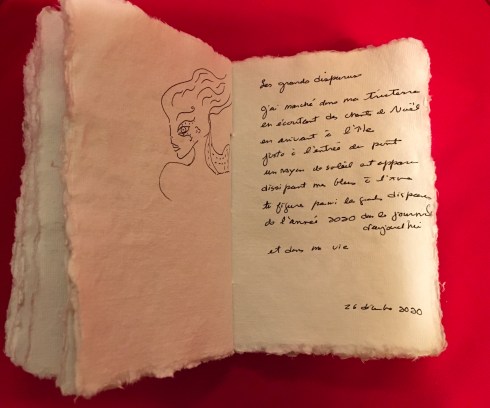 Les grands disparus
j'ai marché dans ma tristesse
en écoutant des chants de Noël
en arrivant à l'île
juste à l'entrée du pont
un rayon de soleil est apparu
dissipant ma bleus à l'âme
te figure parmi les grands disparus
de l'année 2020 dans le journal
d'aujourd'hui
et dans ma vie
26 décembre 2020